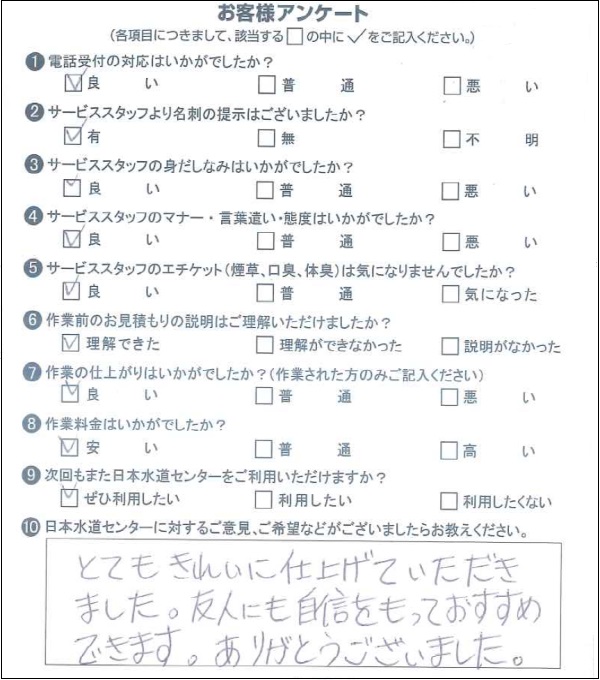 お客様アンケート
(各項目につきまして、該当する□の中に✓をご記入ください。)
❶電話受付の対応はいかがでしたか？
☑良い □普通 □悪い
❷サービススタッフより名刺の提示はございましたか？
☑有 □無 □不明
❸サービススタッフの身だしなみはいかがでしたか？
☑良い □普通 □悪い
❹サービススタッフのマナー・言葉遣い・態度はいかがでしたか？
☑良い □普通 □悪い
❺サービススタッフのエチケット(煙草、口臭、体臭)は気になりませんでしたか？
☑良い □普通 □気になった
❻作業前のお見積もりの説明はご理解いただけましたか？
☑理解できた □理解ができなかった □説明がなかった
❼作業の仕上がりはいかがでしたか？(作業された方のみご記入ください)
☑良い □普通 □悪い
❽作業料金はいかがでしたか？
☑安い □普通 □高い
❾次回もまた日本水道センターをご利用いただけますか？
☑ぜひ利用したい □利用したい □利用したくない
❿日本水道センターに対するご意見、ご希望などがございましたらお教えください。
とてもきれいに仕上げていただき
ました。友人にも自信をもっておすすめ
できます。ありがとうございました。